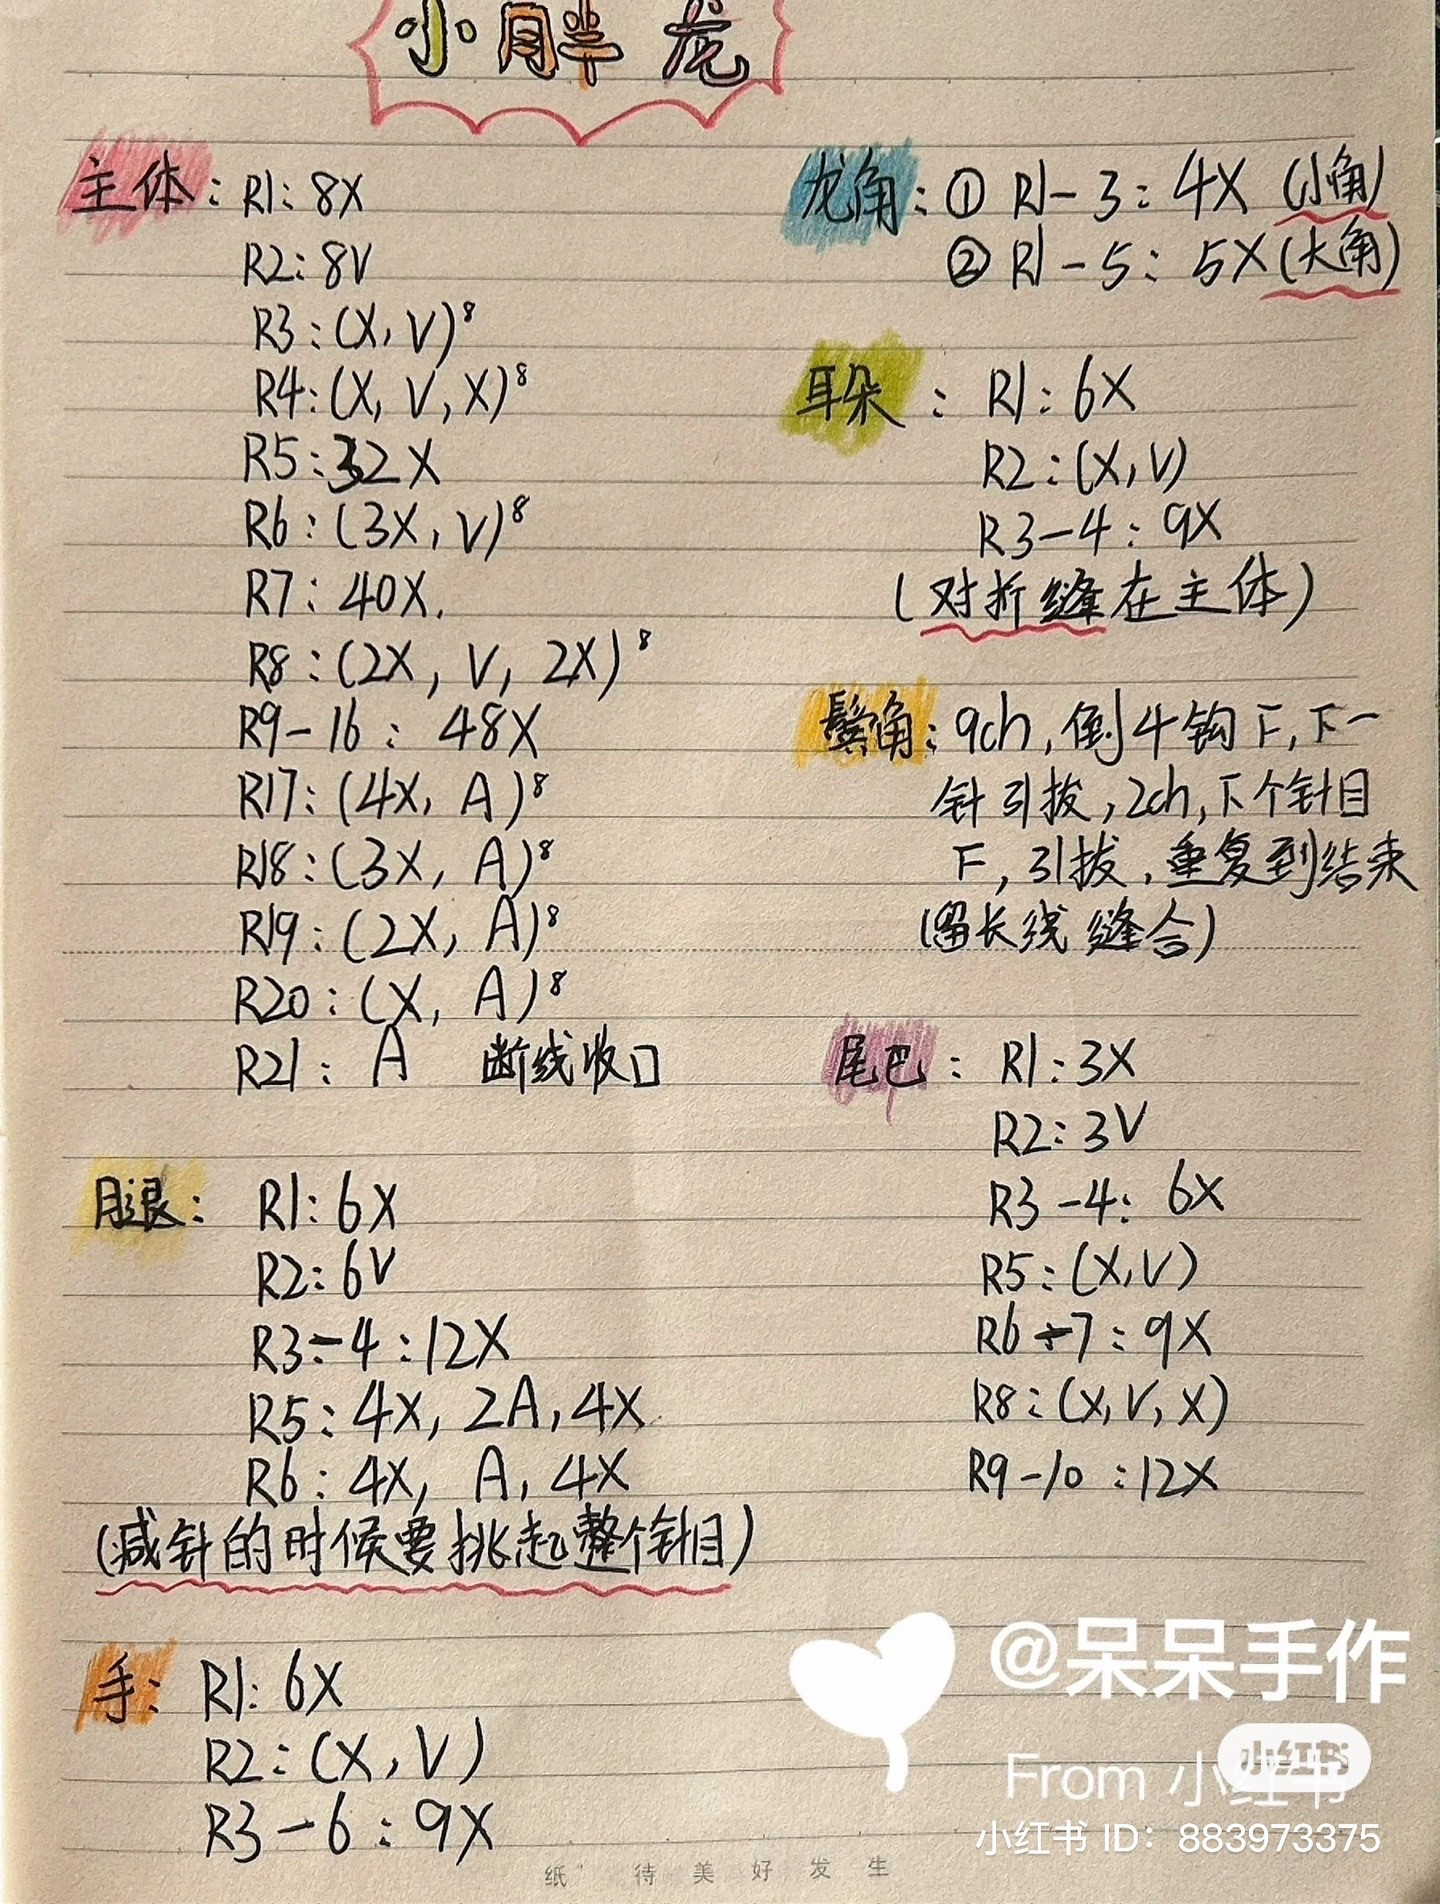 小胖龙
主体：R1：8X
R2：8V
R3：(X，V)⁸
R4：(X，V，X)⁸
R5：32X
R6：(3X，V)⁸
R7：40X.
R8：(2X，V，2X)⁸
R9-16：48X
R17：(4X，A)⁸
R18：(3X，A)⁸
R19：(2X，A)⁸
R20：(X，A)⁸
R21：A 断线收口
腿：R1：6X
R2：6V
R3-4：12X
R5：4X，2A，4X
R6：4X，A，4X
(减针的时候要挑起整个针目)
手：R1：6X
R2：(X，V)
R3-6：9X
龙角：① R1-3：4X (小角)
② R1-5：5X (大角)
耳朵：R1：6X
R2：(X，V)
R3-4：9X
(对折缝在主体)
鬓角：9ch，倒4钩F，下一
针引拔，2ch，下个针目
F，引拔，重复到结束
(留长线缝合)
尾巴：R1：3X
R2：3V
R3-4：6X
R5：(X，V)
R6-7：9X
R8：(X，V，X)
R9-10：12X
@呆呆手作
小红书
From 小红书
小红书 ID：883973375
纸 待 美 好 发 生